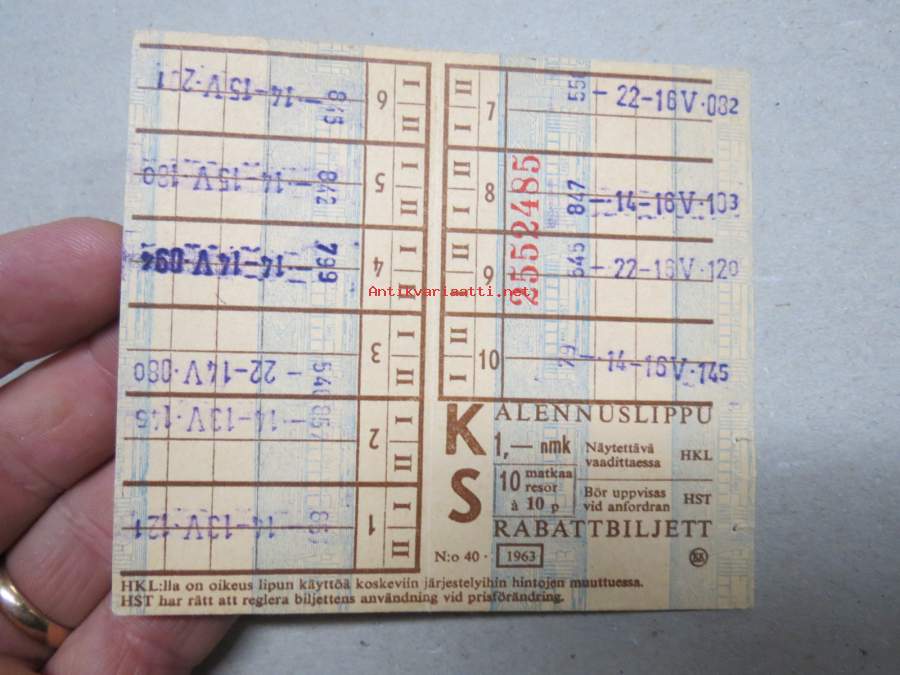 6 I II
845 – 14–15 V·201
5 I II
842 – 14–15 V·180
4 I II
799 – 14–14 V·094
3 I II
540 – 22–14 V·080
2 I II
857 – 14–13 V·146
1 I II
14–13 V·121
II I 7
– 22–16 V·082
II I 8
847 – 14–16 V·103
II I 9
545 – 22–16 V·120
II I 10
79 – 14–16 V·145
2552485
Antikvariaatti.net
K ALENNUSLIPPU
1,— nmk
Näytettävä
vaadittaessa HKL
10 matkaa
resor
à 10 p
Bör uppvisas
vid anfordran HST
S RABATTBILJETT
N:o 40 · 1963
HKL:lla on oikeus lipun käyttöä koskeviin järjestelyihin hintojen muuttuessa.
HST har rätt att reglera biljettens användning vid prisförändring.